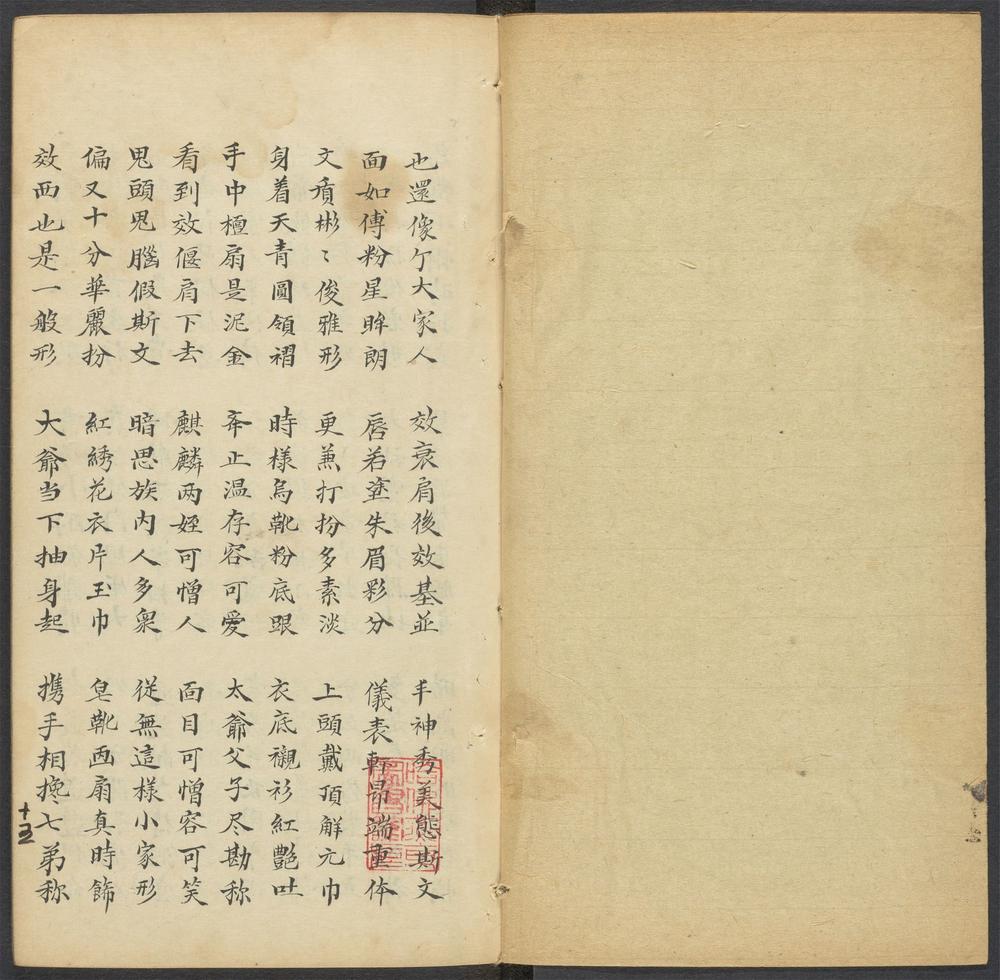 也還像个大家人 效衰肩後效基並 丰神秀美態斯文
面如傅粉星眸朗 唇若塗朱眉彩分 儀表軒昂端重体
文質彬〻俊雅形 更兼打扮多素淡 上頭戴頂解元巾
身着天青圓領褶 時樣烏靴粉底跟 衣底襯衫紅艷吐
手中檀扇是泥金 止温存容可愛 太爺父子尽勘称
看到效偃肩下去 麒麟两姪可憎人 面目可憎容可笑
鬼頭鬼腦假斯文 暗思族内人多衆 從無這樣小家形
偏又十分華麗扮 紅綉花衣片玉巾 皂靴画扇真時餙
效西也是一般形 大爺当下抽身起 携手相搀七弟称
十五